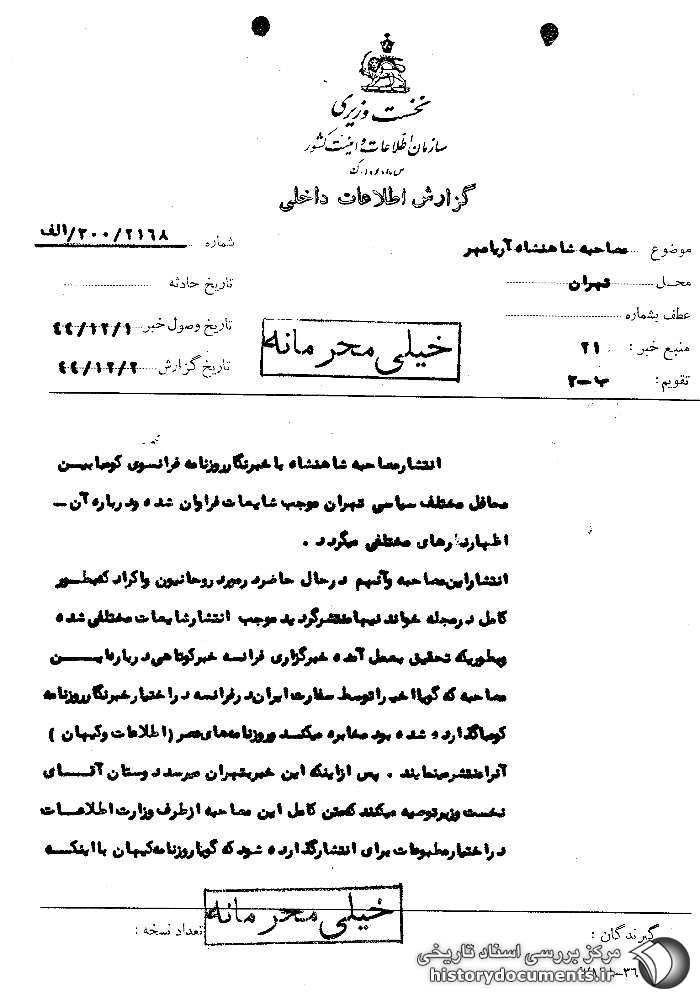 نخست وزیری
سازمان اطلاعات و امنیت کشور
گزارش اطلاعات داخلی
موضوع مصاحبه شاهنشاه آریامهر
شماره ۳۰۰/۲۱۶۸/الف
محل تهران
تاریخ حادثه
عطف بشماره
تاریخ وصول خبر ۴۴/۱۲/۱
منبع خبر : ۲۱
تاریخ گزارش ۴۴/۱۲/۲
تقویم: ب-۲
خیلی محرمانه
انتشار مصاحبه شاهنشاه با خبرنگار روزنامه فرانسوی کومبا بین
محافل مختلف سیاسی تهران موجب شایعات فراوان شده و درباره آن –
اظهارنظرهای مختلفی میگردد .
انتشار این مصاحبه و آنهم در حال حاضر در مورد روحانیون و اکراد که بطور
کامل در مجله خواندنیها منتشر گردید موجب انتشار شایعات مختلفی شده
و بطوریکه تحقیق بعمل آمده خبرگزاری فرانسه خبر کوتاهی درباره این
مصاحبه که گویا اخیرا توسط سفارت ایران در فرانسه در اختیار خبرنگار روزنامه
کومبا گذارده شده بود مخابره میکند و روزنامه های عصر (اطلاعات و کیهان )
آنرا منتشر مینمایند . پس از اینکه این خبر بتهران میرسد دوستان آقای
نخست وزیر توصیه میکنند که متن کامل این مصاحبه از طرف وزارت اطلاعات
در اختیار مطبوعات برای انتشار گذارده شود که گویا روزنامه کیهان با اینکه
خیلی محرمانه
گیرندگان :
تعداد نسخه :
مرکز بررسی اسناد تاریخی
historydocuments.ir